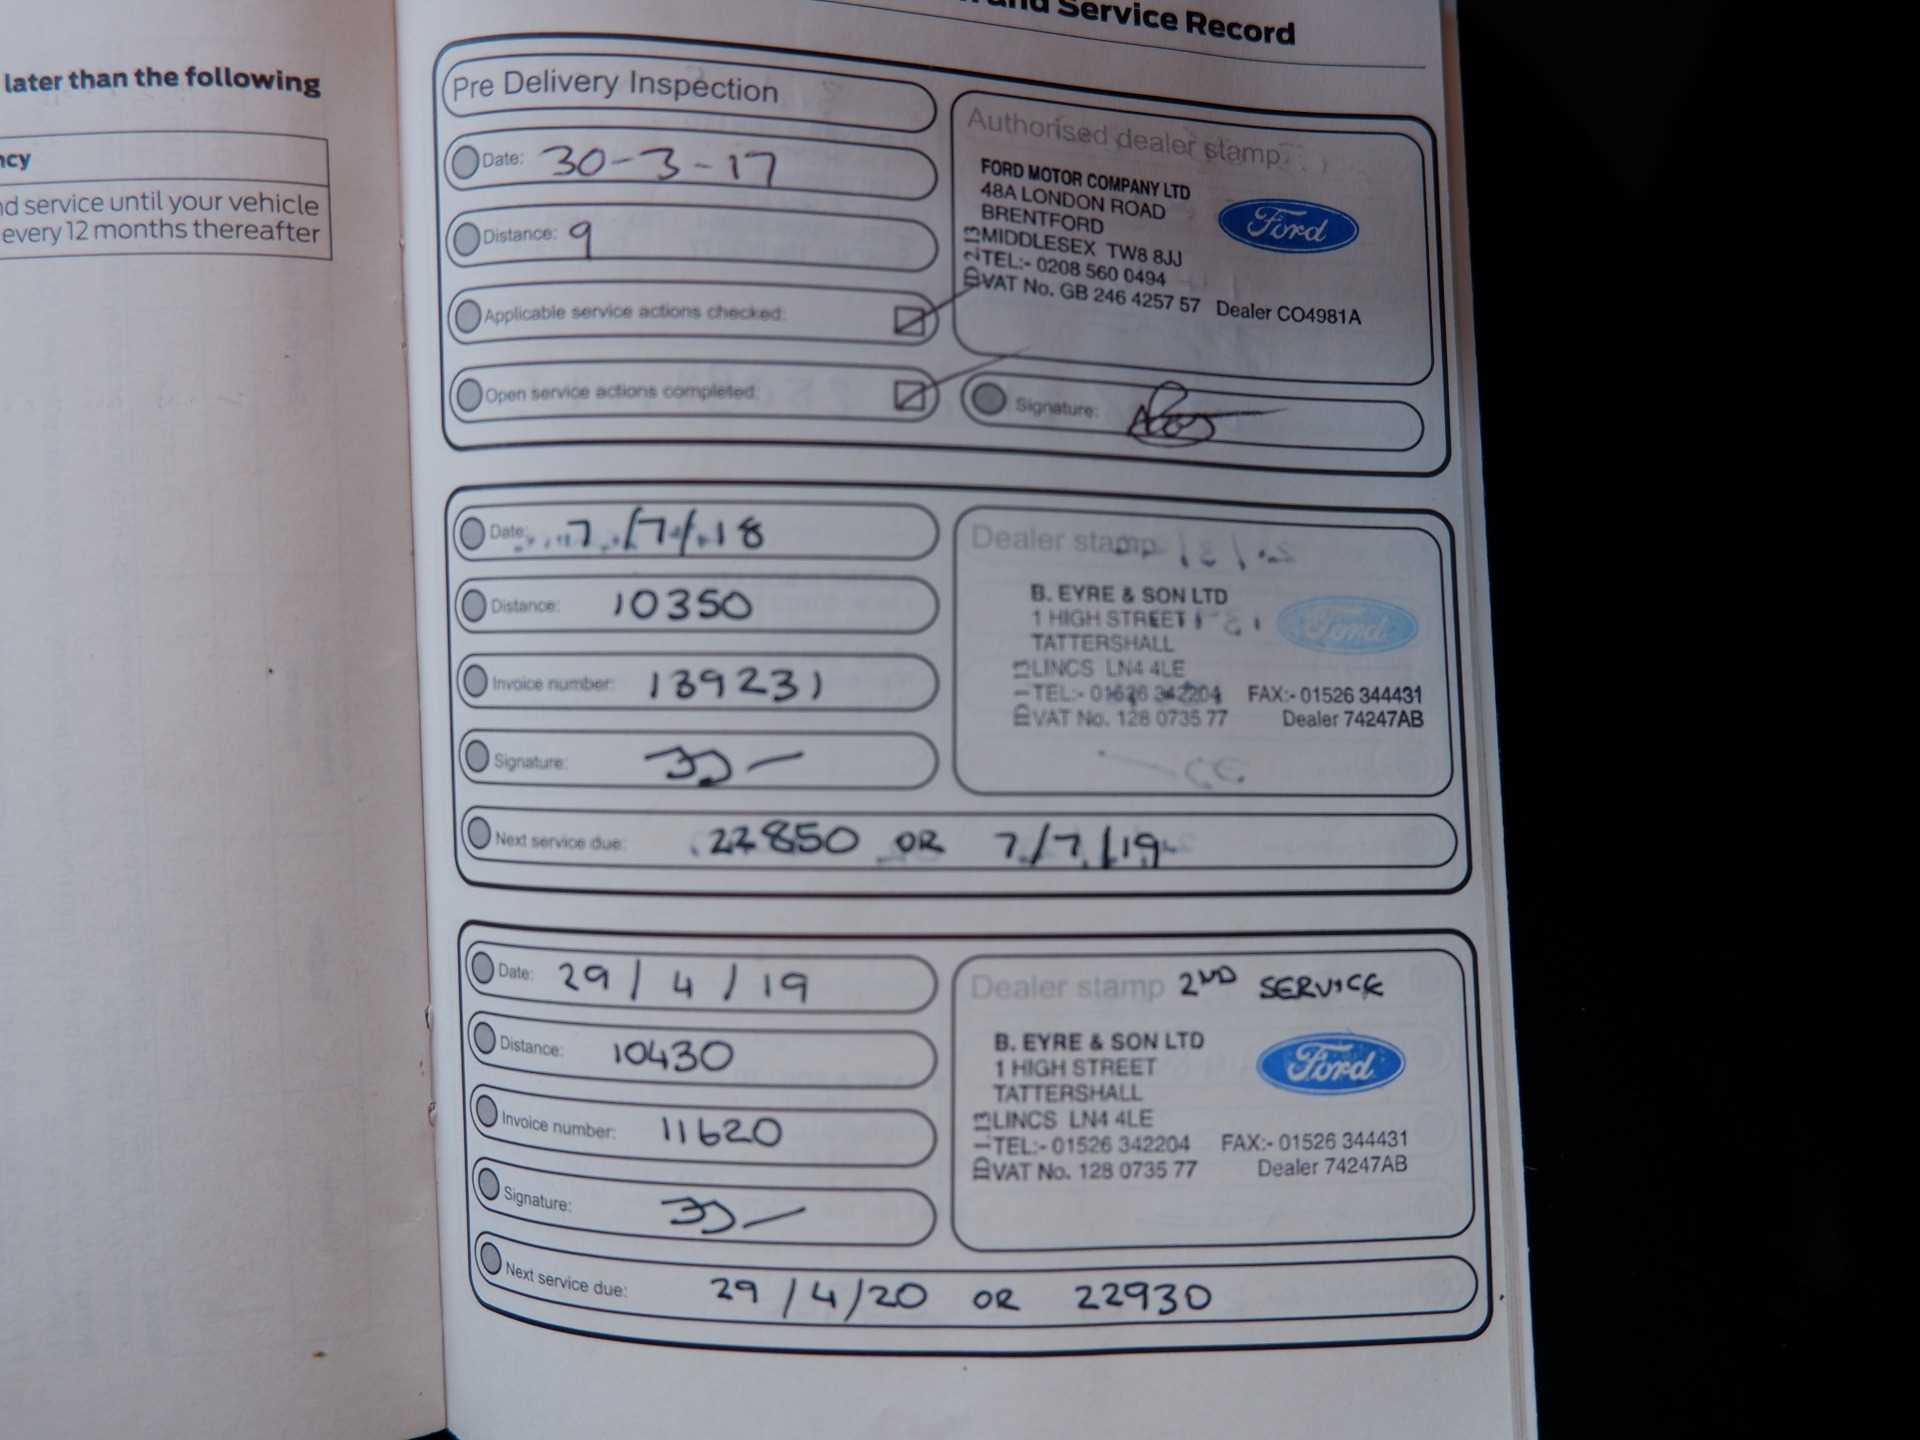 later than the following
ncy
nd service until your vehicle
every 12 months thereafter
and Service Record
Pre Delivery Inspection
Date: 30-3-17
Distance: 9
Applicable service actions checked:
Open service actions completed:
Authorised dealer stamp
FORD MOTOR COMPANY LTD
48A LONDON ROAD
BRENTFORD
MIDDLESEX TW8 8JJ
TEL:- 0208 560 0494
VAT No. GB 246 4257 57 Dealer CO4981A
Ford
Signature:
Date: 7/7/18
Distance: 10350
Invoice number: 139231
Signature:
Dealer stamp
B. EYRE & SON LTD
1 HIGH STREET
TATTERSHALL
LINCS LN4 4LE
TEL:- 01526 342204 FAX:- 01526 344431
VAT No. 128 0735 77 Dealer 74247AB
Ford
Next service due: 22850 OR 7/7/19
Date: 29/4/19
Distance: 10430
Invoice number: 11620
Signature:
Dealer stamp 2ND SERVICE
B. EYRE & SON LTD
1 HIGH STREET
TATTERSHALL
LINCS LN4 4LE
TEL:- 01526 342204 FAX:- 01526 344431
VAT No. 128 0735 77 Dealer 74247AB
Ford
Next service due: 29/4/20 OR 22930